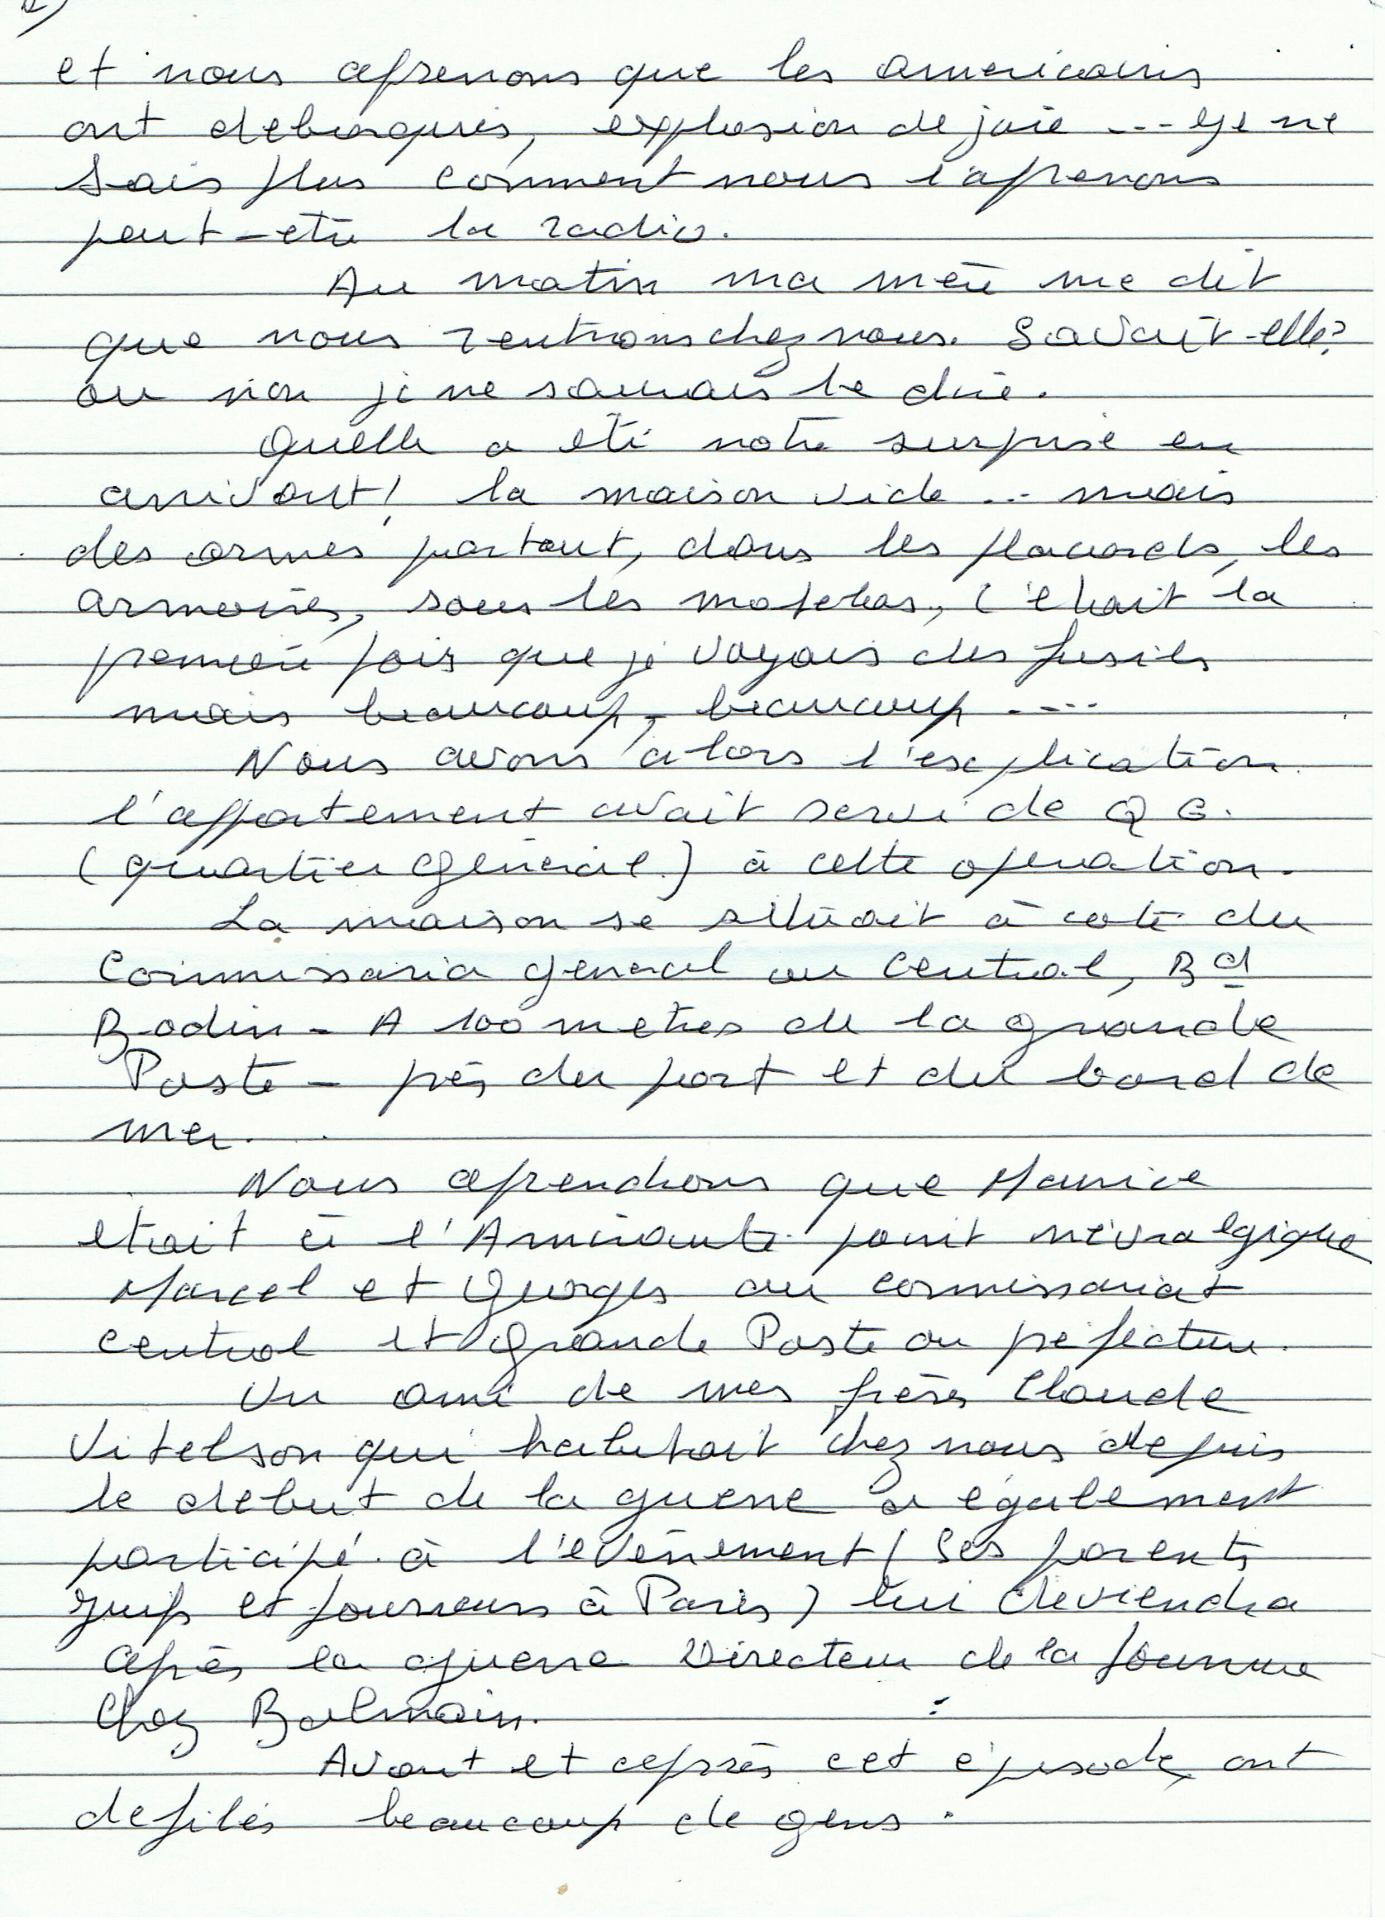 et nous aprenons que les americains
ont debarqués, explosion de joie --- Je ne
sais plus comment nous l'aprenons
peut-etre la radio.
Au matin ma mère me dit
que nous rentrions chez nous. Savait-elle?
ou non je ne saurais le dire.
Quelle a été notre surprise en
arrivant! la maison vide ... mais
des armes partout, dans les placards, les
armoires, sous les matelas, c'etait la
première fois que je voyais des fusils
mais beaucoup, beaucoup ----
Nous avons alors l'explication
l'appartement avait servi de Q G.
(quartier général) à cette operation.
La maison se situait à coté du
Commissaria general ou central, Bd
Bodin - A 100 metres de la grande
Poste - près du port et du bord de
mer.
Nous aprendrons que Maurice
etait à l'Amirauté point névralgique
Marcel et Georges au commissariat
central et grande Poste ou préfecture.
Un ami de mes frères Claude
Vitelson qui habitait chez nous depuis
le debut de la guerre a également
participé à l'evènement (Ses parents
juifs et fourreurs à Paris) lui deviendra
après la guerre Directeur de la fourrure
Chez Balmain.
Avant et après cet episode, ont
defilés beaucoup de gens :